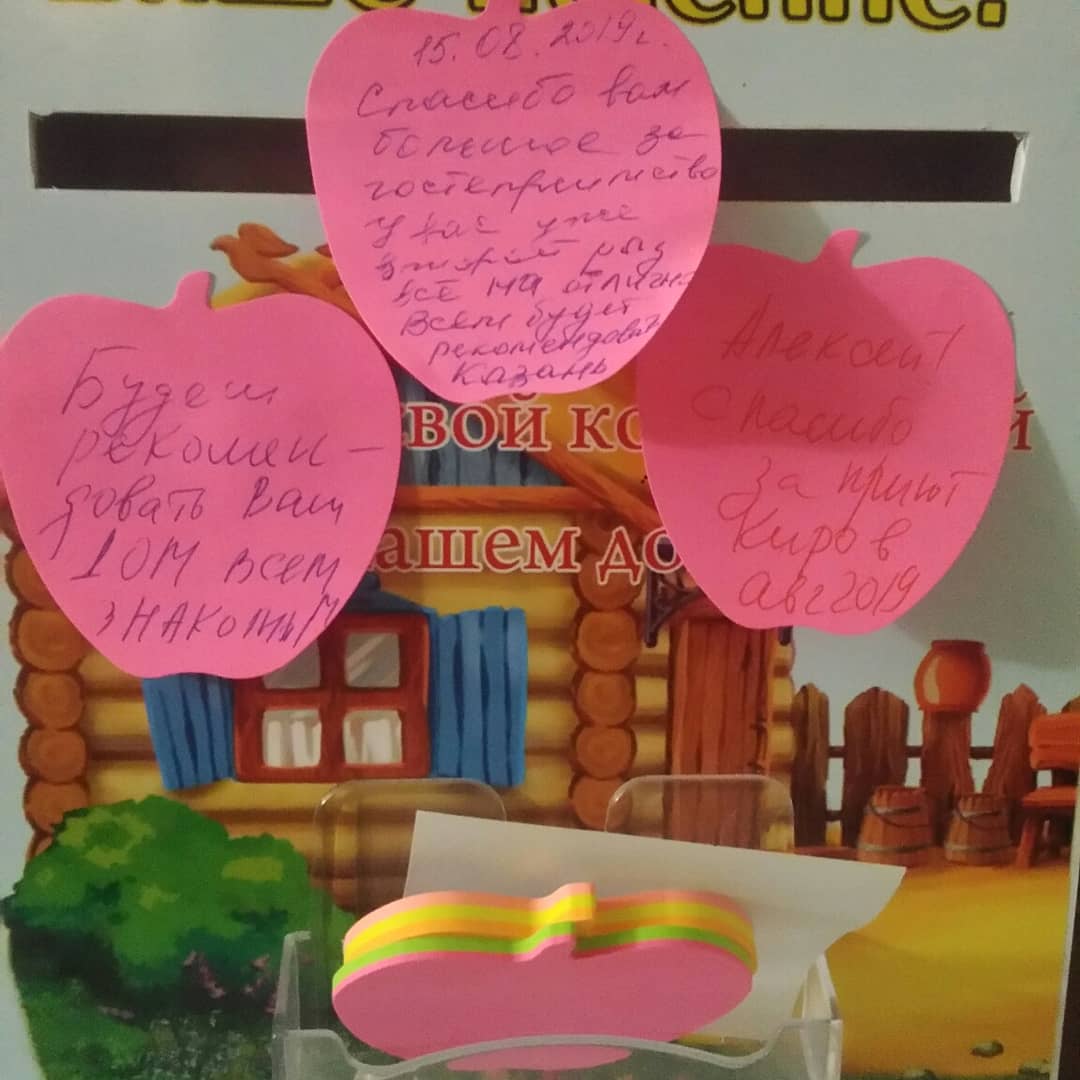 15.08.2019г.
Спасибо вам
большое за
гостеприимство
У вас уже
второй раз
всё на отлично
Всем будем
рекомендовать
Казань
Будем
рекомен-
довать Ваш
ДОМ всем
знакомым
Алексей!
Спасибо
за приют
Киров
авг 2019
свой
ашем до